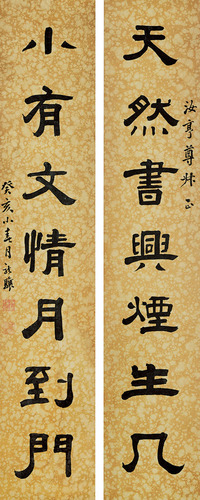 天然書興煙生几
汝亭尊兄正
小有文情月到門
癸亥小春月